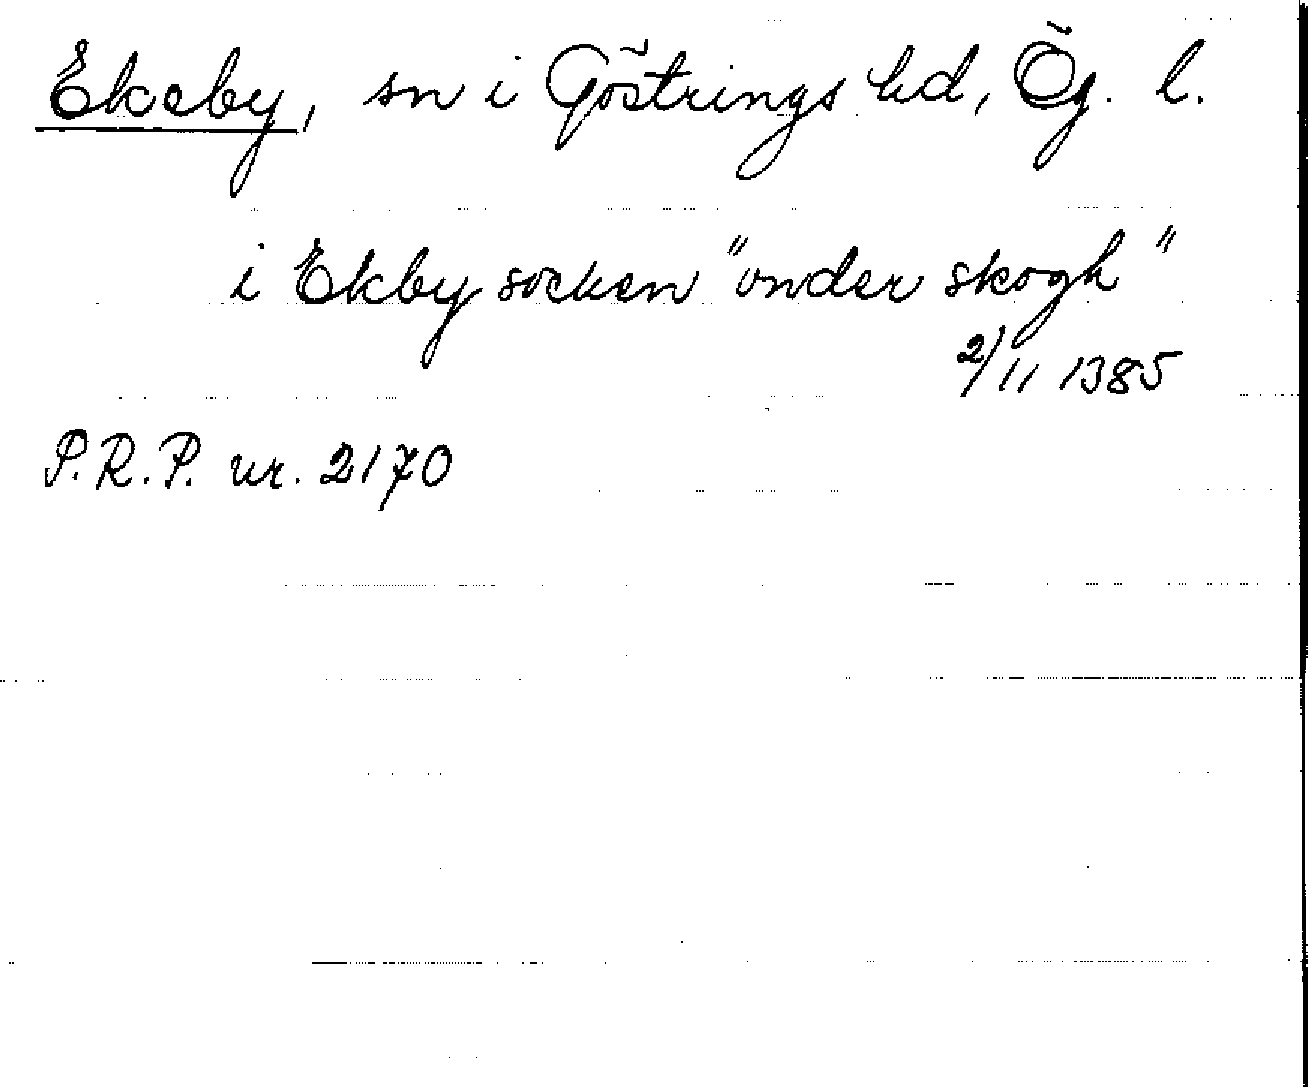 Ekeby, sn i Göstrings hd, Ög. l.
i Ekby socken "vnder skogh"
2/11 1385
P.R.P. nr. 2170